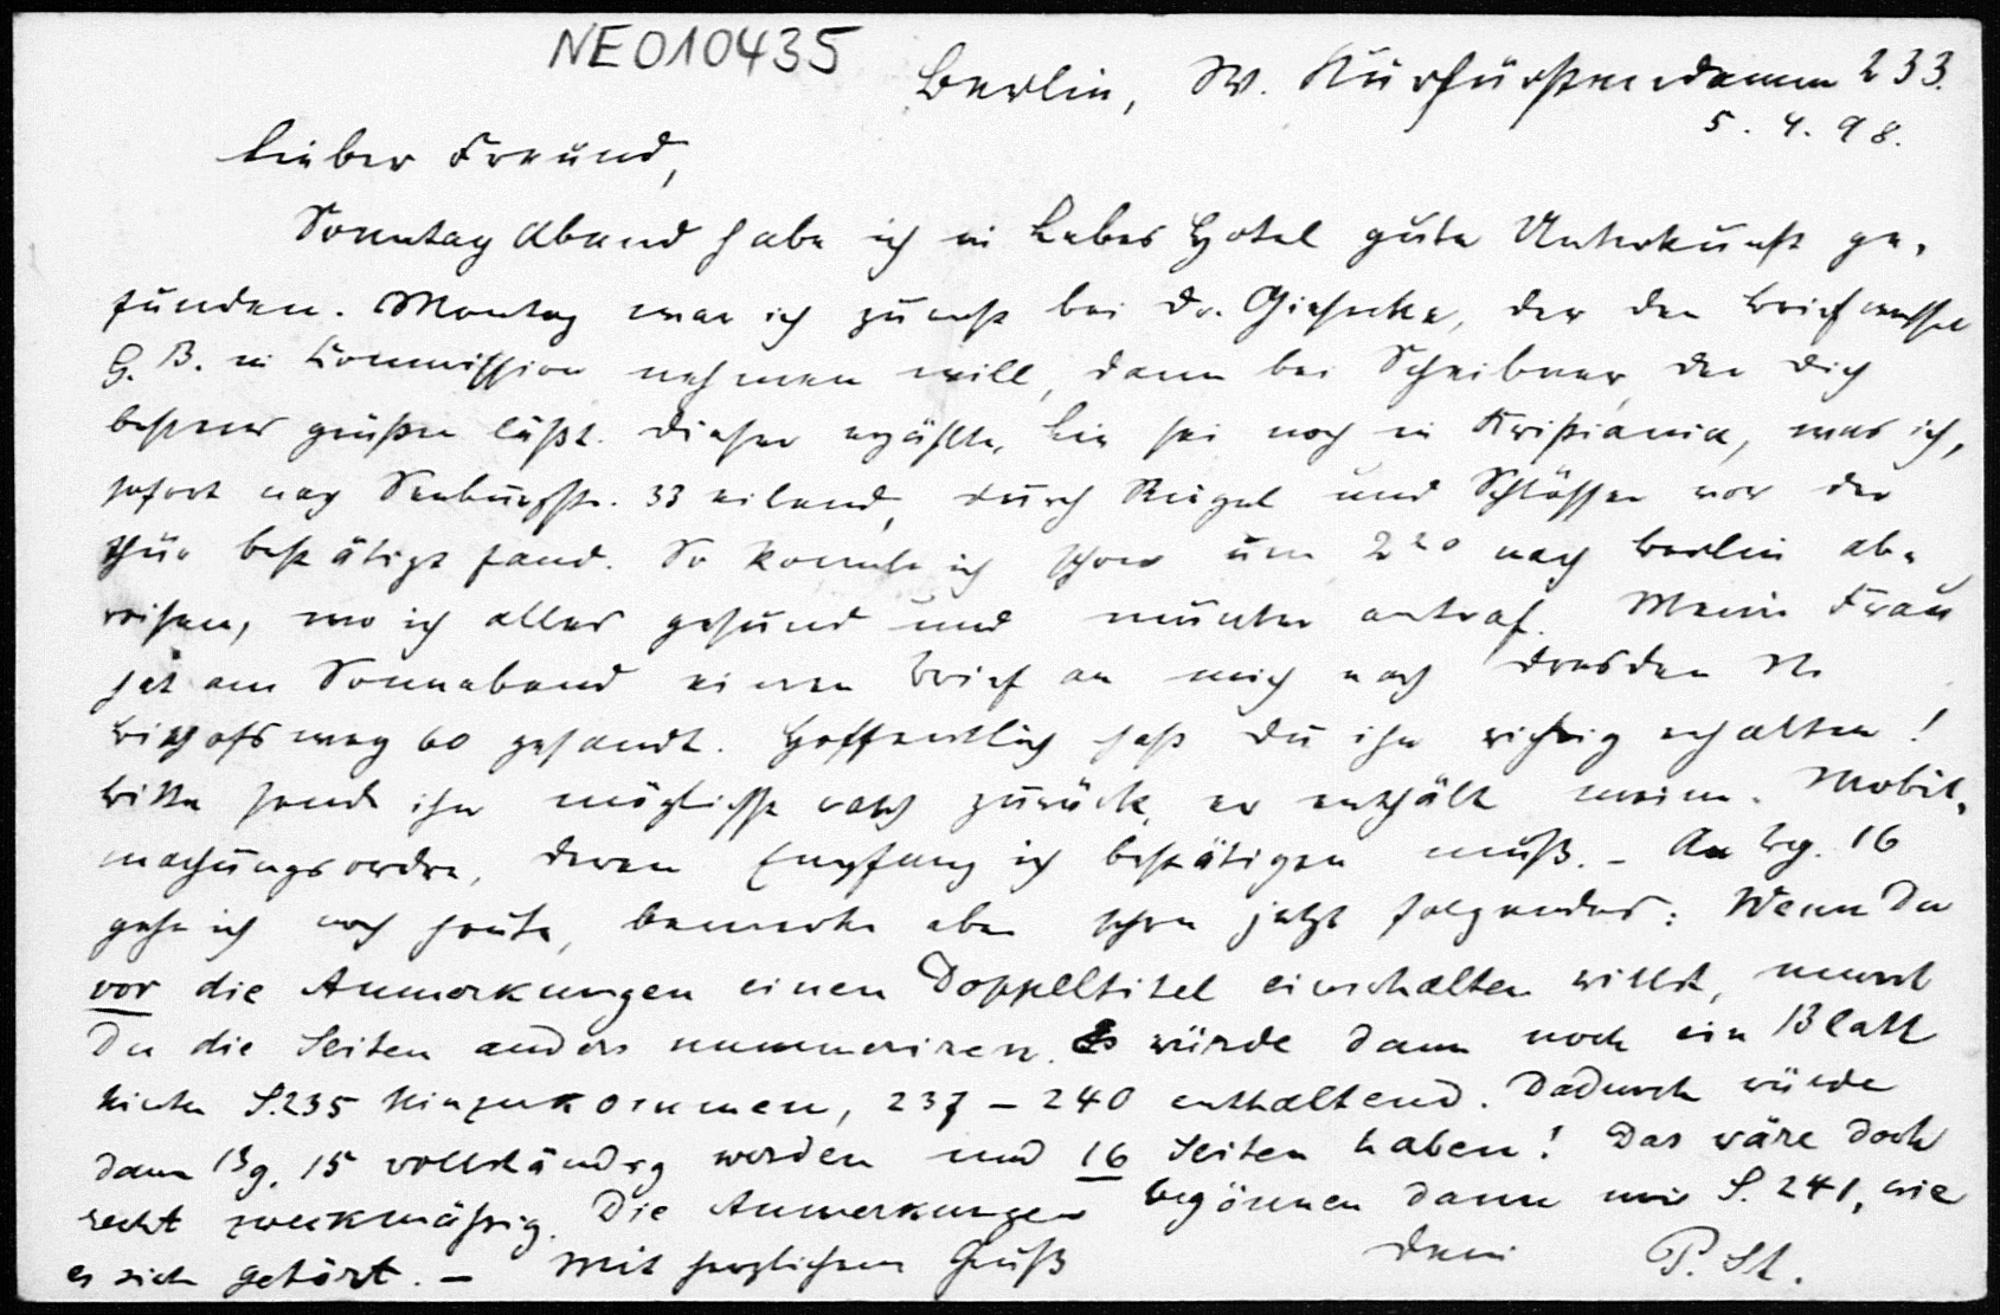 NE010435
Berlin, W. Kurfürstendamm 233.
5. 4. 98.
Lieber Freund,
Sonntag Abend habe ich in Lebes Hotel gute Unterkunft ge-
funden. Montag war ich zuerst bei Dr. Giesecke, der den Briefwechsel
G. B. in Commission nehmen will, dann bei Scheibner, der Dich
bestens grüßen läßt. Dieser erzählte, Lie sei noch in Kristiania, was ich,
sofort nach Seeburgstr. 33 eilend, durch Riegel und Schlösser vor der
Thür bestätigt fand. So konnte ich schon um 2 20 nach Berlin ab-
reisen, wo ich alles gesund und munter antraf. Meine Frau
hat am Sonnabend einen Brief an mich nach Dresden N.
Bischofsweg 60 gesandt. Hoffentlich hast Du ihn richtig erhalten!
Bitte sende ihn möglichst rasch zurück, er enthält meine Mobil-
machungsordre, deren Empfang ich bestätigen muß. – An Bg. 16
gehe ich noch heute, bemerke aber schon jetzt folgendes: Wenn Du
vor die Anmerkungen einen Doppeltitel einschalten willst, musst
Du die Seiten anders nummeriren. Es würde dann noch ein Blatt
hinter S. 235 hinzukommen, 237 – 240 enthaltend. Dadurch würde
dann Bg. 15 vollständig werden und 16 Seiten haben! Das wäre doch
recht zweckmäßig. Die Anmerkungen begönnen dann mit S. 241, wie
es sich gehört. – Mit herzlichem Gruß Dein P. St.